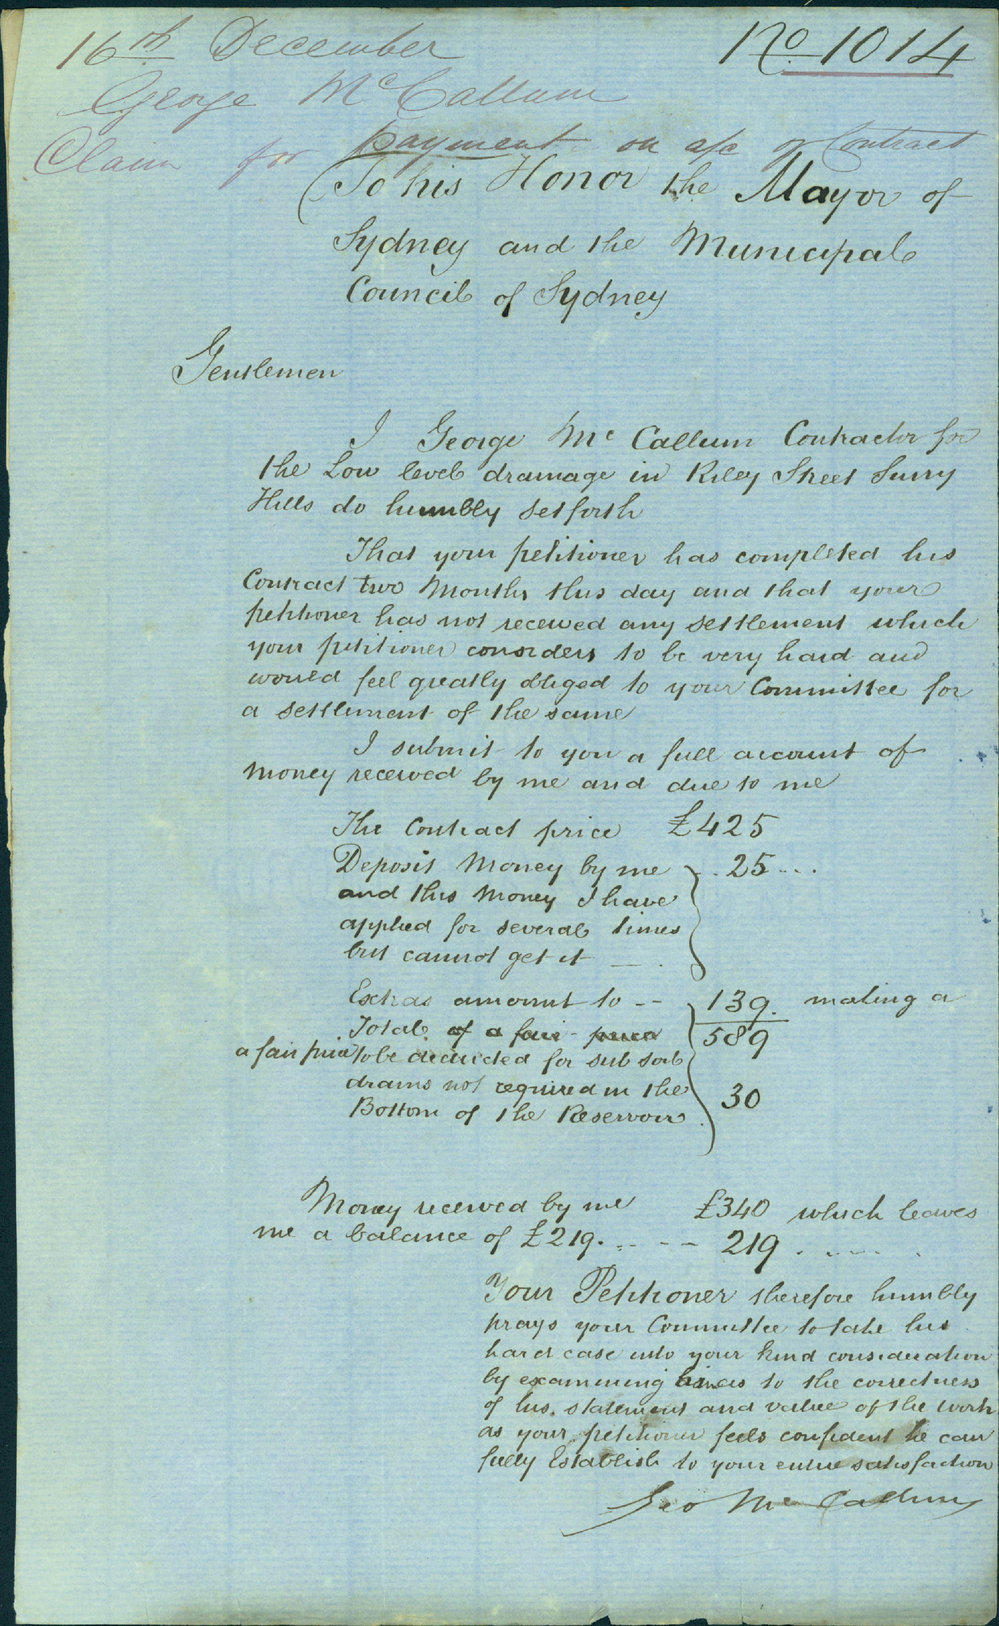 16th December
No 1014
George McCallum
Claim for payment on a/c of Contract
To his Honor the Mayor of
Sydney and the Municipal
Council of Sydney
Gentlemen
I George Mc Callum Contractor for
the Low level drainage in Riley Street Surry
Hills do humbly setforth
That your petitioner has completed his
Contract two Months this day and that your
petitioner has not received any settlement which
your petitioner considers to be very hard and
would feel greatly obliged to your Committee for
a settlement of the same
I submit to you a full account of
Money received by me and due to me
The Contract price £425
Deposit Money by me .. 25 ...
and this Money I have
applied for several times
but cannot get it
Extras amount to -- 139. making a
Total of a fair price 589
a fair price to be deducted for sub soil
drains not required in the
Bottom of the Reservoir 30
Money received by me £340 which leaves
me a balance of £219. .. - - 219 . ....
Your Petitioner therefore humbly
prays your Committee to take his
hard case into your kind consideration
by examining him as to the correctness
of his statement and value of the work
as your petitioner feels confident he can
fully Establish to your entire satisfaction
Geo Mc Callum